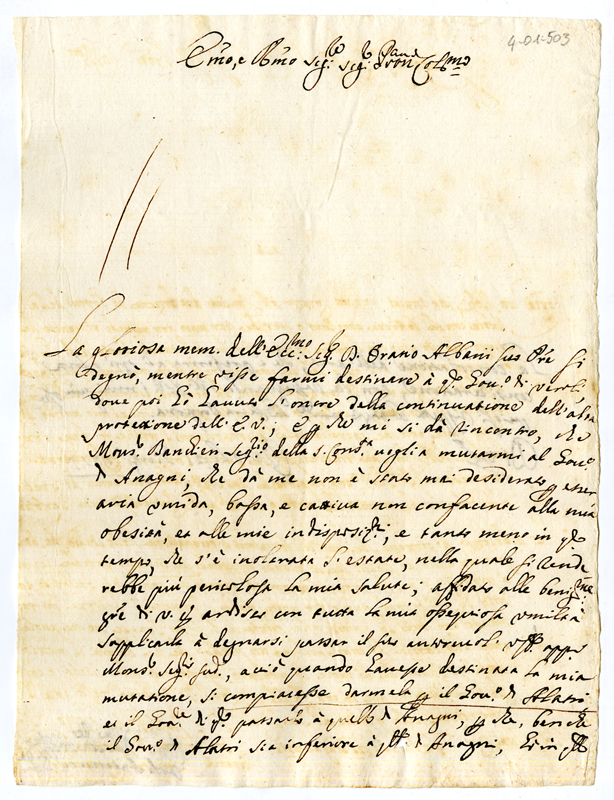 4-01-503
Emo, e Rmo Sigre Sigr Padron Colmo
La gloriosa mem. dell'Eccmo Sigr D. Oratio Albani suo Pre si
degnò, mentre visse farmi destinare à qto Govo di Veroli
dove poi hò havuto l'onore della continuatione dell'alta
protezione dell'E.V.; e perche mi si dà rincontro, che
Monsr Banchieri Segrio della S. Consta voglia mutarmi al Govo
di Anagni, che dà me non è stato mai desiderato p esser
aria umida, bassa, e cattiva non confacente alla mia
obesità, et alle mie indisposizni, e tanto meno in qto
tempo, che s'è inoltrata l'estate, nella quale si rende
rebbe più pericolosa la mia salute; affidato alle benigne
gre di V.E. ardisco con tutta la mia ossequiosa umiltà
supplicarla à degnarsi passar il suo autorevol. uffo appo
Monsr Segrio sudo, acciò quando havesse destinata la mia
mutatione, si compiacesse darmela p il Govo di Alatri
et il Govre di qto passarlo à quello di Anagni, p che, benche
il Govo di Alatri sia inferiore à qto di Anagni, hò in qto